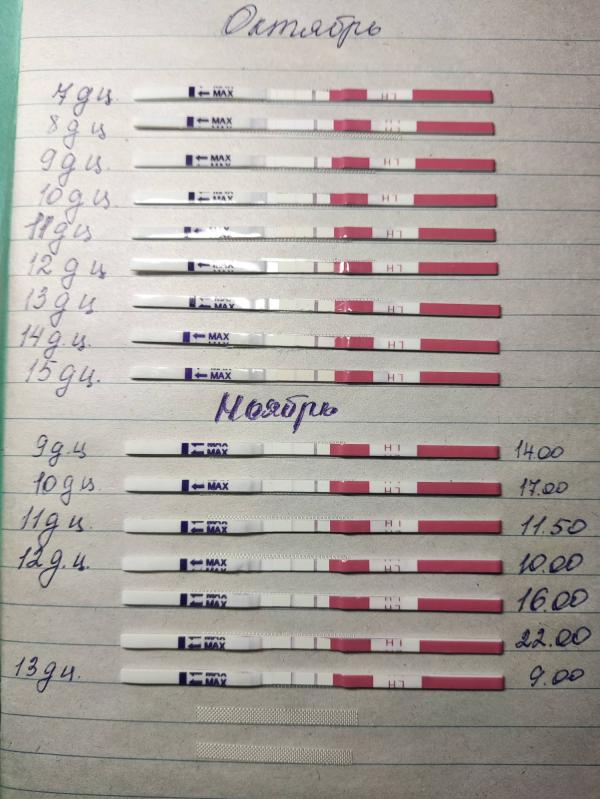 Октябрь
7 д ц. ← MAX LH
8 д ц ← MAX LH
9 д ц. ← MAX LH
10 д ц ← MAX LH
11 д ц LH
12 д ц ← LH
13 д ц ← MAX LH
14 д.ц. ← MAX LH
15 д ц. ← MAX LH
Ноябрь
9 д.ц ← MAX LH 14.00
10 д ц. ← MAX LH 17.00
11 д ц. ← MAX LH 11.50
12 д.ц. ← MAX LH 10.00
← MAX LH 16.00
← MAX LH 22.00
13 д ц. ← MAX LH 9.00